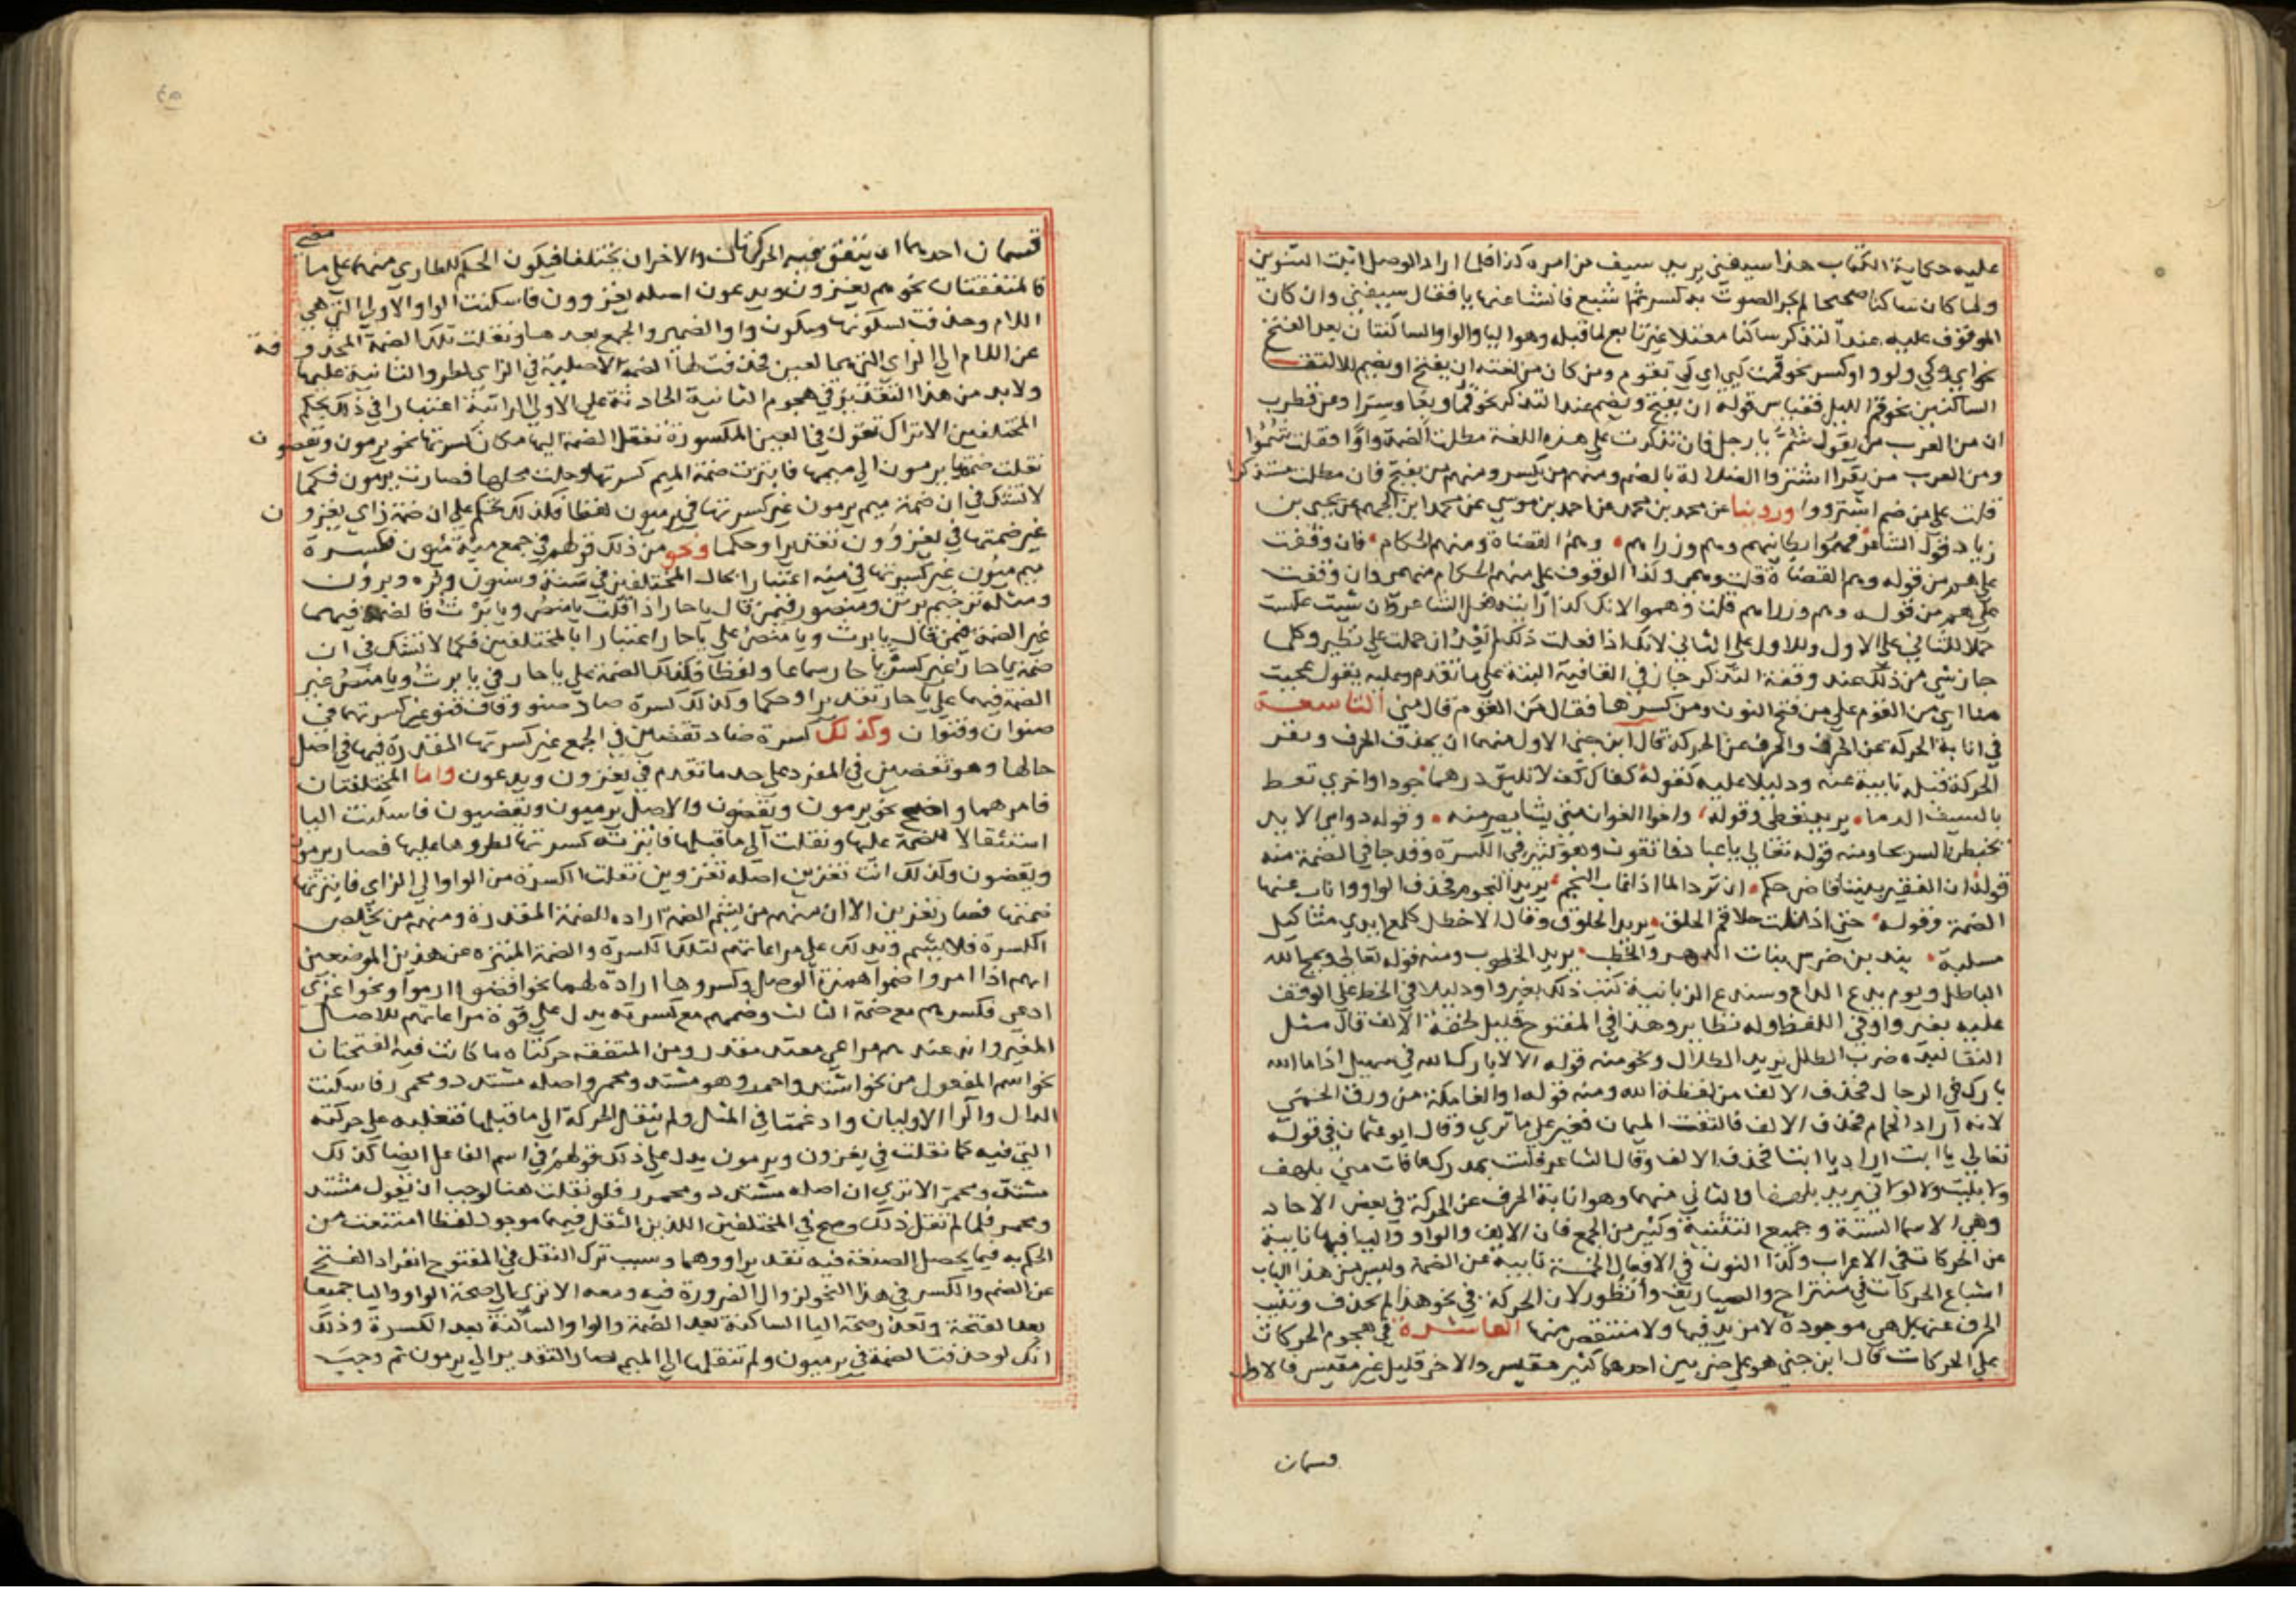 عليه حكاية الكتاب هذا سيفني يريد سيف من امره كذا فلما اراد الوصل اثبت التنوين
ولما كان ساكنا صحيحا لم يجر الصوت به كسر ثم اشبع فانشا عنها يا فقال سيفني وان كان
الموقوف عليه عند التذكر ساكنا معتلا غير تابع لما قبله وهو اليا والواو الساكنتان بعد الفتح
نحو اي وكي ولو واو كسر نحو قمت كي اي كي تقوم ومن كان من لغته ان يفتح او يضم لالتقا
الساكنين نحو قم الليل فقياس قوله ان يفتح ويضم عند التذكر نحو قما وبعا وسرا وعن قطرب
ان من العرب من يقول شم يا رجل فان تذكرت علي هذه اللغة مطلت الضمة واوا فقلت شموا
ومن العرب من يقرا اشتروا الضلالة بالضم ومنهم من يكسر ومنهم من يفتح فان مطلت متذكرا
قلت علي من ضم اشترووا وروينا عن محمد بن محمد عن احمد بن موسي عن محمد ابن الجهم عن يحيى بن
زياد قول الشاعر فهموا بطانتهم وهم وزراهم وهم القضاة ومنهم الحكام فان وقفت
علي هم من قوله وهم القضاة قلت وهمي وكذا الوقوف علي منهم الحكام منهمي وان وقفت
علي هم من قوله وهم وزراهم قلت وهموا لانك كذا رايته فعل الشاعر وان شيت عكست
حملا للثاني علي الاول وللاول علي الثاني لانك اذا فعلت ذلك لم تعد ان حملت علي نظير وكلما
جاز شي من ذلك عند وقفة التذكر جاز في القافية البتة علي ما تقدم وعليه يقول عجبت
منا اي من القوم علي من فتح النون ومن كسرها فقال من القوم قال مني التاسعة
في انابة الحركة عن الحرف والحرف عن الحركة قال ابن جني الاول منهما ان يحذف الحرف وتقر
الحركة قبله نايبة عنه ودليلا عليه كقوله كفاك كف لا تليق درهما جودا واخري تعط
بالسيف الدما يريد تعطي وقوله واخوا الغوان متي يشا يصرمنه وقوله دوامي الايد
يخبطن السريحا ومنه قوله تعالي يا عباد فاتقون وهو كثير في الكسرة وقد جا في الضمة منه
قوله ان الفقير بيننا قاض حكم ان ترد الما اذا غاب النجم يريد النجوم فحذف الواو واناب عنها
الضمة وقوله حتي اذا بلت حلاقم الحلق يريد الحلوق وقال الاخطل كلمع ايدي مثاكيل
مسلبة يندبن ضرس بنات الدهر والخطب يريد الخطوب ومنه قوله تعالي ويمح الله
الباطل ويوم يدع الداع وسندع الزبانية كتب ذلك بغير واو دليلا في الخط علي الوقف
عليه بغير واو في اللفظ وله نظاير وهذا في المفتوح قليل لخفة الالف قال مثل
النقا لبده ضرب الطلل يريد الطلال ونحو منه قوله الا لا بارك الله في سهيل اذا ما الله
بارك في الرجال فحذف الالف من لفظة الله ومنه قوله اوالفا مكة من ورق الحمي
لانه اراد الحمام فحذف الالف فالتقت الميمان فغير علي ما تري وقال ابو عثمان في قوله
تعالي يا ابت اراد يا ابتا فحذف الالف وقال الشاعر فلست بمدرك ما فات مني بلهف
ولا بليت ولا لواني يريد بلهفا والثاني منهما وهو انابة الحرف عن الحركة في بعض الاحاد
وهي الاسما الستة وجميع التثنية وكثير من الجمع فان الالف والواو واليا فيها نايبة
عن الحركات في الاعراب وكذا النون في الافعال الخمسة نايبة عن الضمة وليس من هذا الباب
اشباع الحركات في منتزاح والصياريف وانظور لان الحركة في نحو هذا لم تحذف وتنب
الحرف عنها بل هي موجودة لا مزيد فيها ولا منتقص منها العاشرة في هجوم الحركات
علي الحركات قال ابن جني هو علي ضربين احدهما كثير مقيس والاخر قليل غير مقيس فالاول
قسمان
قسمان احدهما ان يتفق فيه الحركتان والاخر ان يختلفا فيكون الحكم للطاري منهما علي ما مضي
فالمتفقتان نحو هم يغزون ويدعون اصله يغزوون فاسكنت الواو الاولي التي هي
اللام وحذفت لسكونها وسكون واو الضمير والجمع بعدها ونقلت تلك الضمة المحذوفة
عن اللام الي الزاي التي هي العين فحذفت لها الضمة الاصلية في الزاي لطرو الثانية عليها
ولا بد من هذا التقدير في هجوم الثانية الحادثة علي الاولي الراتبة اعتبارا في ذلك بحكم
المختلفين الا تراك تقول في العين المكسورة بنقل الضمة اليها مكان كسرتها نحو يرمون ويقضون
نقلت ضمة يا يرميون الي ميمها فابتزت ضمة الميم كسرتها وحلت محلها فصارت يرمون فكما
لا نشك في ان ضمة ميم يرمون غير كسرتها في يرميون لفظا فكذلك نحكم علي ان ضمة زاي يغزون
غير ضمتها في يغزوون تقديرا وحكما ونحو من ذلك قولهم في جمع مية ميون فكسرة
ميم ميون غير كسرتها في مية اعتبارا بحال المختلفين في سنة وسنون وبره وبرون
ومثله ترخيم برثن ومنصور فيمن قال يا حار اذا قلت يا منص ويا برث فالضمة فيهما
غير الضمة فيمن قال يا برث ويا منص علي يا حار اعتبارا بالمختلفين فكما لا نشك في ان
ضمة يا حار غير كسر يا حار سماعا ولفظا فكذلك الضمة علي يا حار في يا برث ويا منص غير
الضمة فيهما علي يا حار تقديرا وحكما وكذلك كسرة صاد صنو وقاف قنو غير كسرتهما في
صنوان وقنوان وكذلك كسرة ضاد تقضين في الجمع غير كسرتها المقدرة فيها في اصل
حالها وهو تقضيين في المفرد علي حد ما تقدم في يغزون ويدعون واما المختلفتان
فامرهما واضح نحو يرمون ويقضون والاصل يرميون ويقضيون فاسكنت اليا
استثقالا للضمة عليها ونقلت الي ما قبلها فابتزته كسرتها لطروها عليها فصار يرمون
ويقضون وكذلك انت تغزين اصله تغزوين نقلت الكسرة من الواو الي الزاي فابتزتها
ضمتها فصار تغزين الا ان منهم من يشم الضمة ارادة للضمة المقدرة ومنهم من يخلص
الكسرة فلا يشم ويدلك علي مراعاتهم لتلك الكسرة والضمة المبتزه عن هذين الموضعين
انهم اذا امروا ضموا همزة الوصل وكسروها ارادة لهما نحو اقضوا ارموا ونحو اغزي
ادعي فكسرهم مع ضمة الثالث وضمهم مع كسرته يدل علي قوة مراعاتهم للاصل
المغير وانه عندهم مراعي معتد مقدر ومن المتفقة حركتاه ما كانت فيه الفتحتان
نحو اسم المفعول من نحو اشتد واحمر وهو مشتد ومحمر واصله مشتدد ومحمرر فاسكنت
الدال والرا الاوليان وادغمتا في المثل ولم ينقل الحركة الي ما قبلها فتغلبه علي حركته
التي فيه كما نقلت في يغزون ويرمون يدل علي ذلك قولهم في اسم الفاعل ايضا كذلك
مشتد ومحمر الا تري ان اصله مشتدد ومحمرر فلو نقلت هنا لوجب ان يقول مشتد
ومحمر فلما لم تقل ذلك وصح في المختلفين اللذين النقل فيهما موجود لفظا امتنعت من
الحكم به فيما يحصل الصنعة فيه تقديرا ووهما وسبب ترك النقل في المفتوح انفراد الفتح
عن الضم والكسر في هذا النحو لزوال الضرورة فيه ومعه الا تري الي صحة الواو واليا جميعا
بعد الفتحة وتعذر صحة اليا الساكنة بعد الضمة والواو الساكنة بعد الكسرة وذلك
انك لو حذفت الضمة في يرميون ولم تنقلها الي الميم لصار التقدير الي يرمون ثم وجب